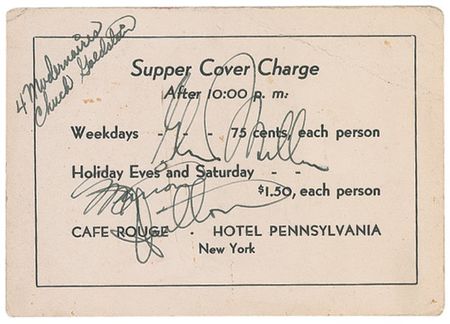 4 Modernaires
Chuck Goldstein
Supper Cover Charge
After 10:00 p. m:
Weekdays - - - 75 cents, each person
Glenn Miller
Holiday Eves and Saturday - -
$1.50, each person
Marion
Hutton
CAFE ROUGE · HOTEL PENNSYLVANIA
New York